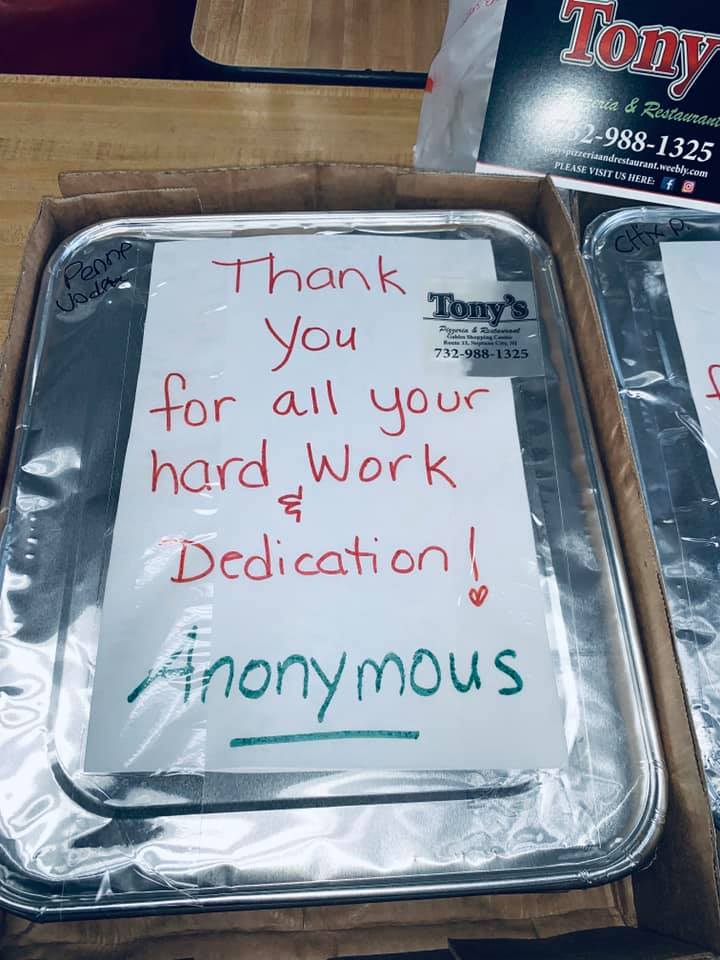 Tony
eria & Restaurant
2-988-1325
pizzeriaandrestaurant.weebly.com
PLEASE VISIT US HERE:
Penne
Vodka
Chix P.
Thank
You
for all your
hard Work
&
Dedication!
Anonymous
Tony's
Pizzeria & Restaurant
Gables Shopping Center
Route 33, Neptune City, NJ
732-988-1325
f